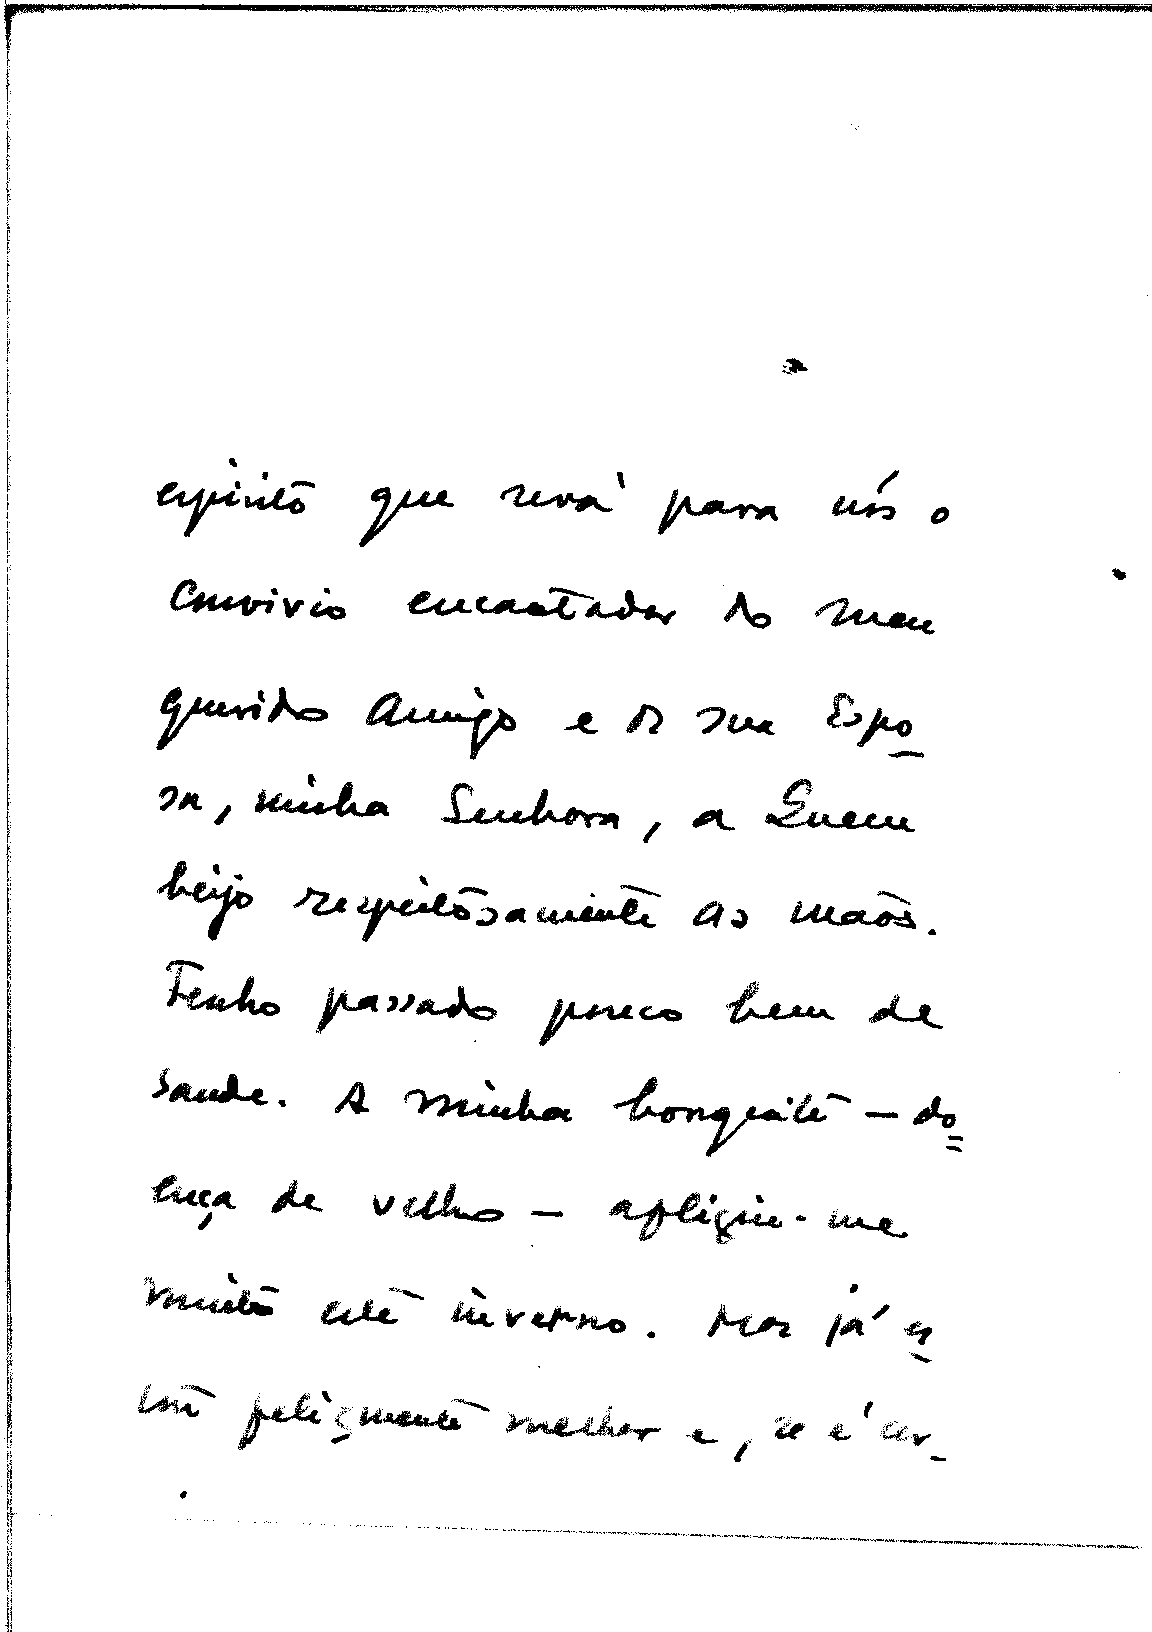 espirito que será para nós o
convivio encantador do meu
querido Amigo e de sua Espo-
sa, minha Senhora, a Quem
beijo respeitosamente as mãos.
Tenho passado pouco bem de
saude. A minha bonquite - do=
ença de velho - afligiu-me
muito este inverno. Mas já es-
tou felizmente melhor e, se é cer-